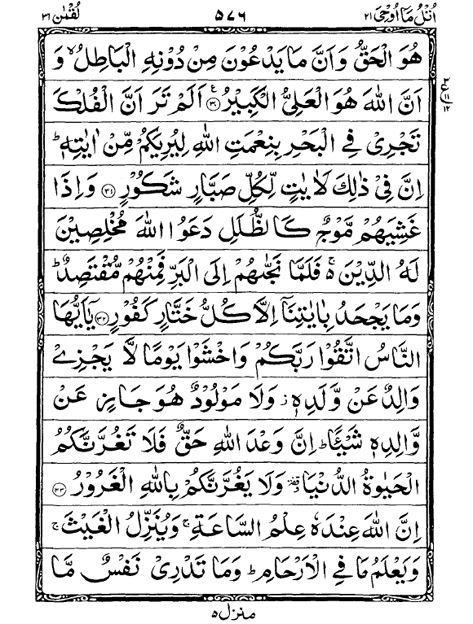 اتل ما اوحی ۲۱ ۵۷۶ لقمٰن ۳۱
هُوَ الْحَقُّ وَاَنَّ مَا يَدْعُوْنَ مِنْ دُوْنِهِ الْبَاطِلُ ۙ وَ
اَنَّ اللّٰهَ هُوَ الْعَلِىُّ الْكَبِيْرُ ﴿۳۰﴾ اَلَمْ تَرَ اَنَّ الْفُلْكَ
تَجْرِىْ فِى الْبَحْرِ بِنِعْمَتِ اللّٰهِ لِيُرِيَكُمْ مِّنْ اٰيٰتِهٖ ؕ
اِنَّ فِىْ ذٰلِكَ لَاٰيٰتٍ لِّكُلِّ صَبَّارٍ شَكُوْرٍ ﴿۳۱﴾ وَاِذَا
غَشِيَهُمْ مَّوْجٌ كَالظُّلَلِ دَعَوُا اللّٰهَ مُخْلِصِيْنَ
لَهُ الدِّيْنَ ۚ فَلَمَّا نَجّٰٮهُمْ اِلَى الْبَرِّ فَمِنْهُمْ مُّقْتَصِدٌ ؕ
وَمَا يَجْحَدُ بِاٰيٰتِنَاۤ اِلَّا كُلُّ خَتَّارٍ كَفُوْرٍ ﴿۳۲﴾ يٰۤاَيُّهَا
النَّاسُ اتَّقُوْا رَبَّكُمْ وَاخْشَوْا يَوْمًا لَّا يَجْزِىْ
وَالِدٌ عَنْ وَّلَدِهٖ ؗ وَلَا مَوْلُوْدٌ هُوَ جَازٍ عَنْ
وَّالِدِهٖ شَيْـًٔا ؕ اِنَّ وَعْدَ اللّٰهِ حَقٌّ فَلَا تَغُرَّنَّكُمُ
الْحَيٰوةُ الدُّنْيَا ۥ وَلَا يَغُرَّنَّكُمْ بِاللّٰهِ الْغَرُوْرُ ﴿۳۳﴾
اِنَّ اللّٰهَ عِنْدَهٗ عِلْمُ السَّاعَةِ ۚ وَيُنَزِّلُ الْغَيْثَ ۚ
وَيَعْلَمُ مَا فِى الْاَرْحَامِ ؕ وَمَا تَدْرِىْ نَفْسٌ مَّا
منزل ۵